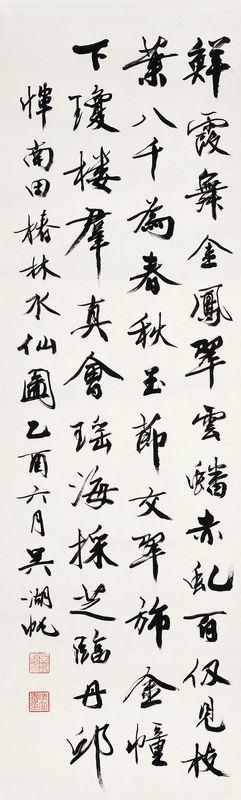 鮮霞舞金鳳翠雲蟠赤虬百仭見枝
葉八千為春秋玉節交翠斾金幢
下瓊樓羣真會瑶海採芝臨丹邱
惲南田椿林水仙圖乙酉六月吴湖帆